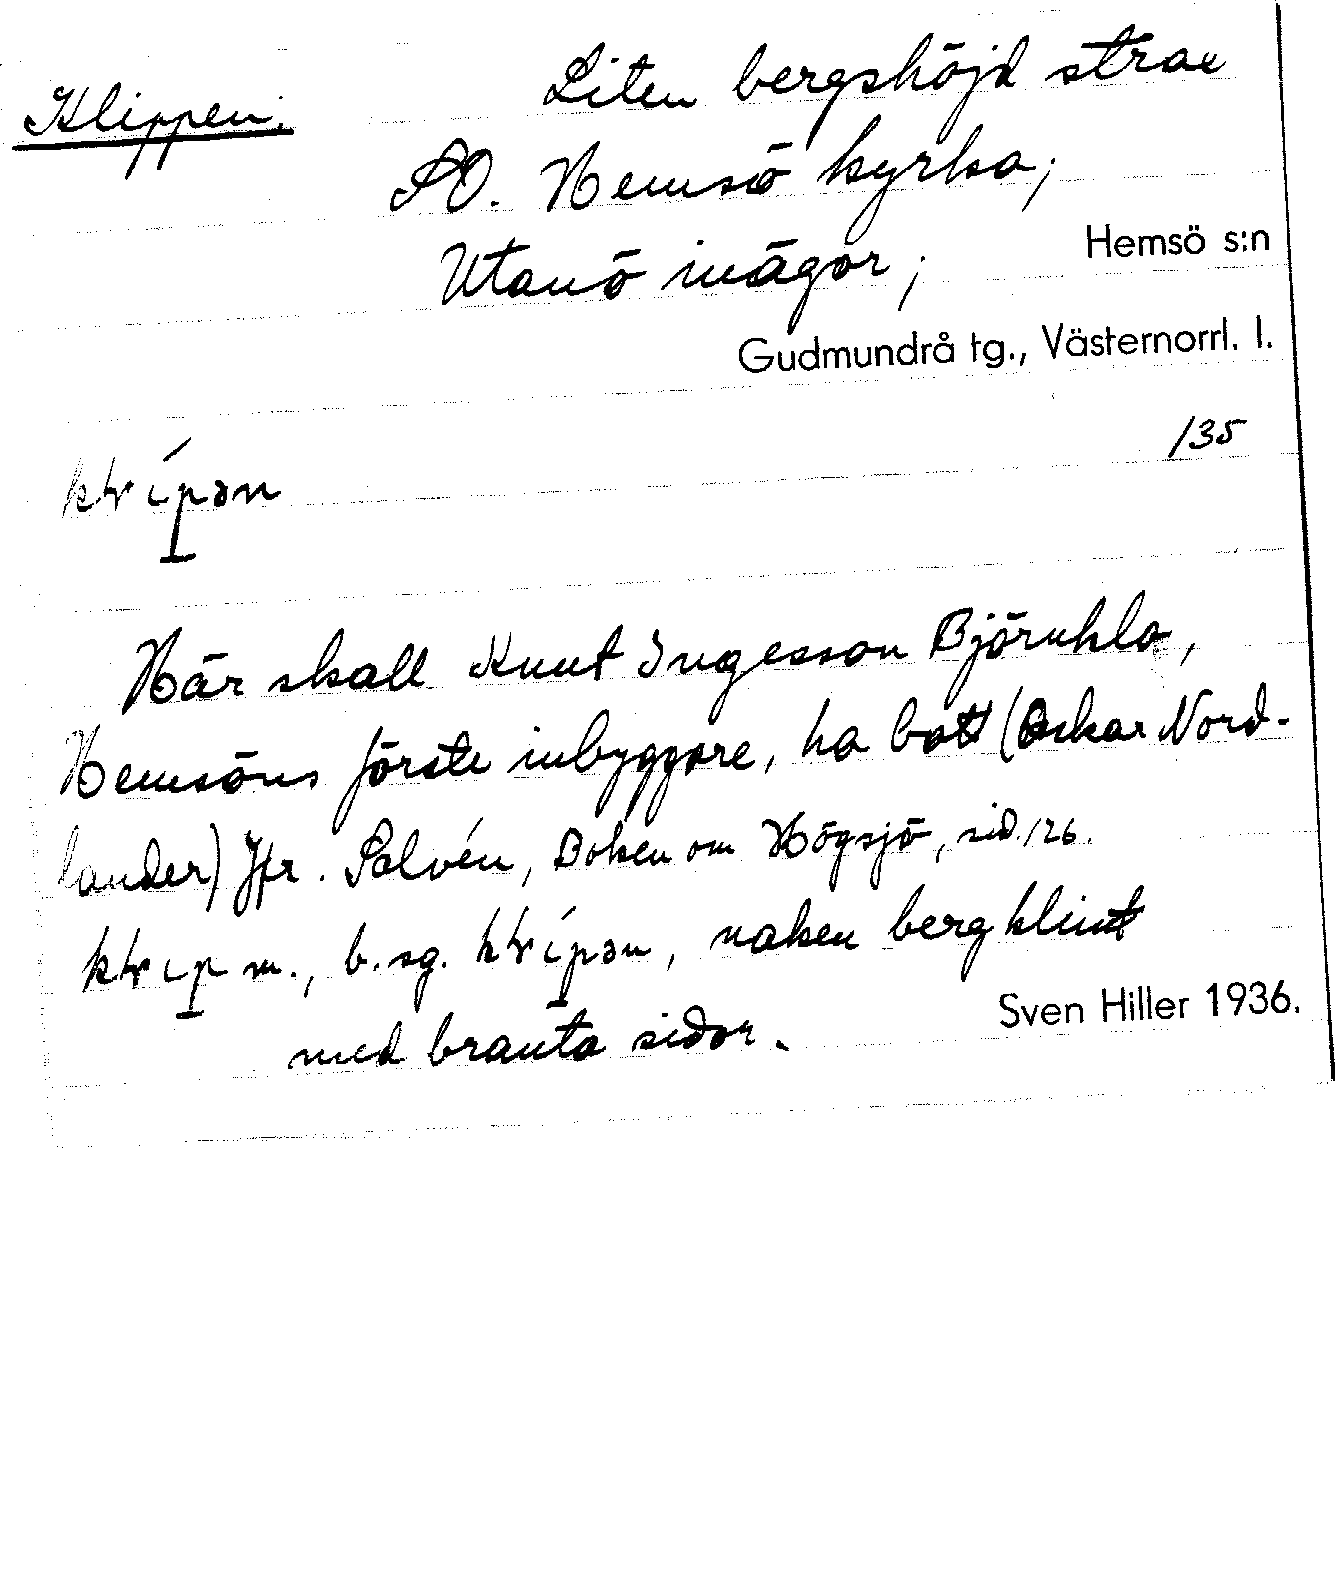 Klippen. Liten bergshöjd strax
SO. Hemsö kyrka;
Utanö inägor; Hemsö s:n
Gudmundrå tg., Västernorrl. l.
135
Här skall Knut Ingesson Björnklo,
Hemsöns förste inbyggare, ha bott (Oskar Nord-
lander) Jfr. Solvén, Boken om Högsjö, sid. 126.
m., b. sg. , naken bergklint
med branta sidor. Sven Hiller 1936.